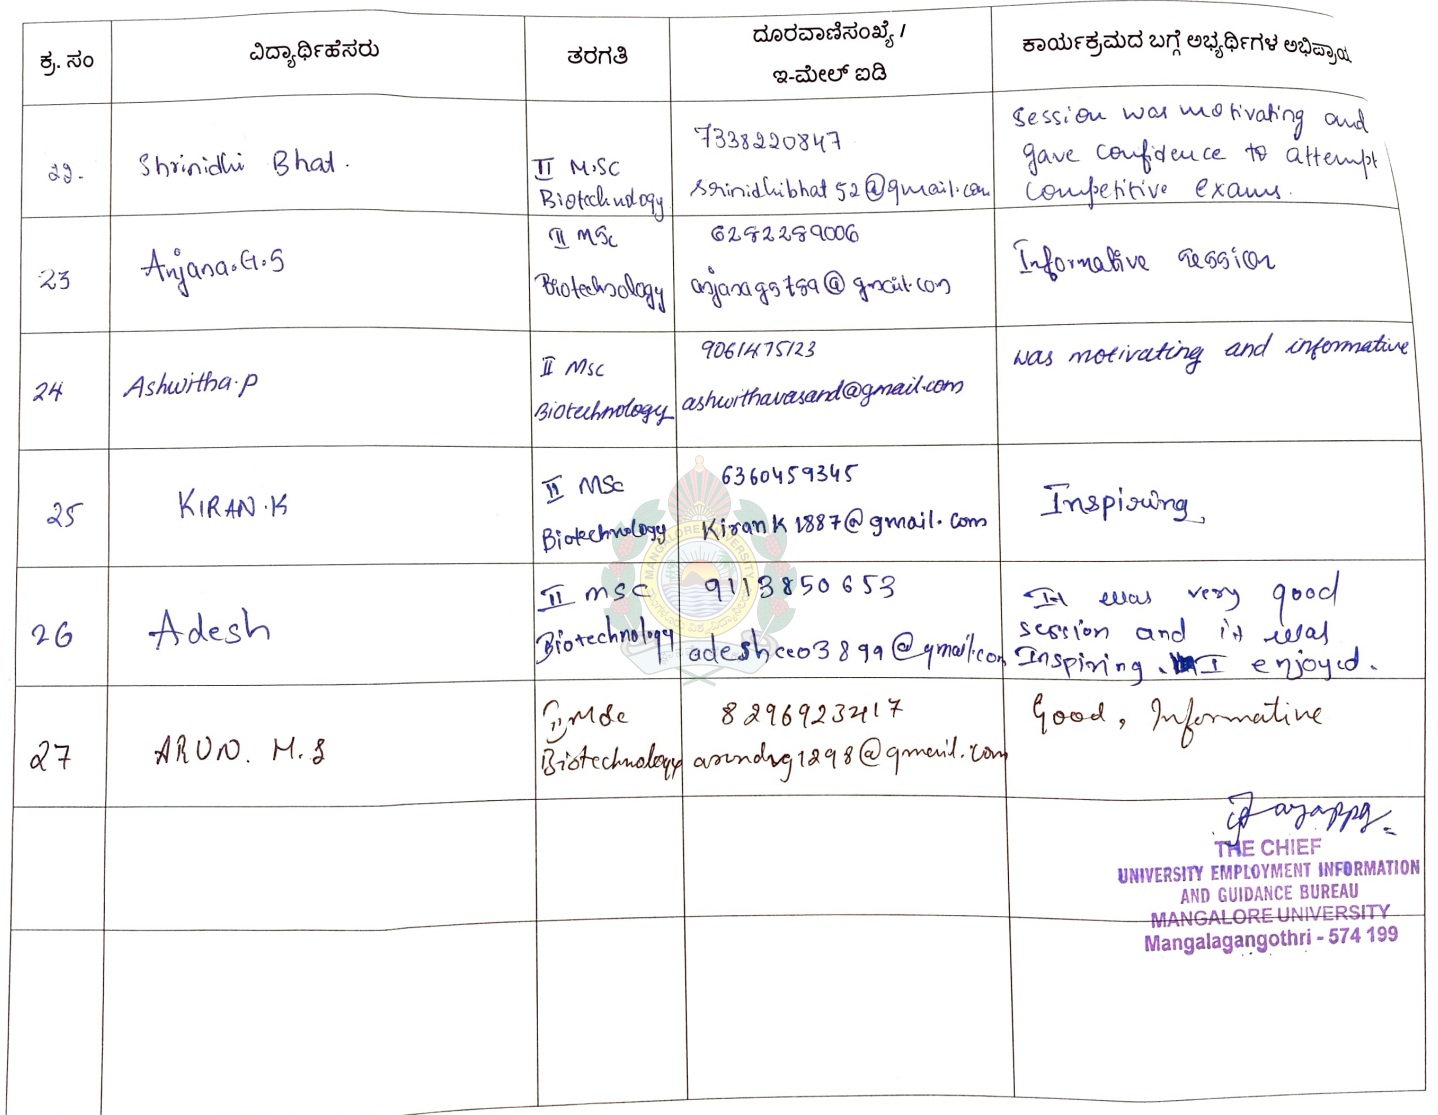 ಕ್ರ. ಸಂ
ವಿದ್ಯಾರ್ಥಿಹೆಸರು
ತರಗತಿ
ದೂರವಾಣಿಸಂಖ್ಯೆ /
ಇ-ಮೇಲ್ ಐಡಿ
ಕಾರ್ಯಕ್ರಮದ ಬಗ್ಗೆ ಅಭ್ಯರ್ಥಿಗಳ ಅಭಿಪ್ರಾಯ
22.
Shrinidhi Bhat.
II M.SC
Biotechnology
7338220847
srinidhibhat52@gmail.com
Session was motivating and
gave confidence to attempt
competitive exams.
23
Anjana.G.S
II MSc
Biotechnology
6282289006
anjanags789@gmail.com
Informative session
24
Ashwitha.p
II Msc
Biotechnology
9061475123
ashwithavasand@gmail.com
was motivating and informative
25
KIRAN.K
II MSc
Biotechnology
6360459345
KiranK1887@gmail.com
Inspiring
26
Adesh
II MSC
Biotechnology
9113850653
adeshceo3899@gmail.com
It was very good
session and it was
Inspiring. I enjoyed.
27
ARUN. M.S
II MSc
Biotechnology
8296923417
@gmail.com
Good, Informative
THE CHIEF
UNIVERSITY EMPLOYMENT INFORMATION
AND GUIDANCE BUREAU
MANGALORE UNIVERSITY
Mangalagangothri - 574 199
MANGALORE UNIVERSITY